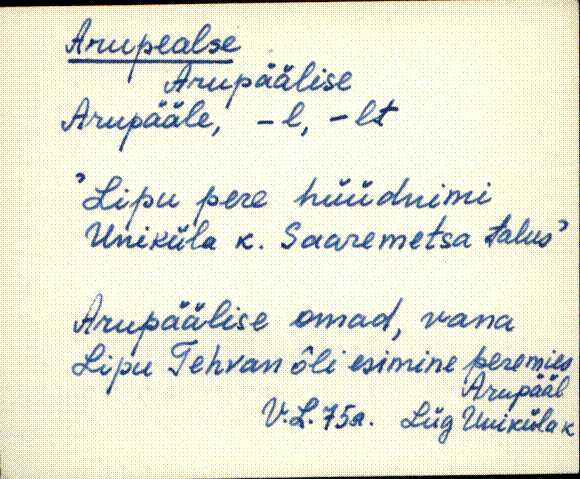 Arupealse
Arupäälise
Arupääle, -l, -lt
"Lipu pere hüüdnimi
Uniküla k. Saaremetsa talus"
Arupäälise omad, vana
Lipu Tehvan õli esimine peremies
Arupääl
V.L. 75a. Lüg Uniküla k